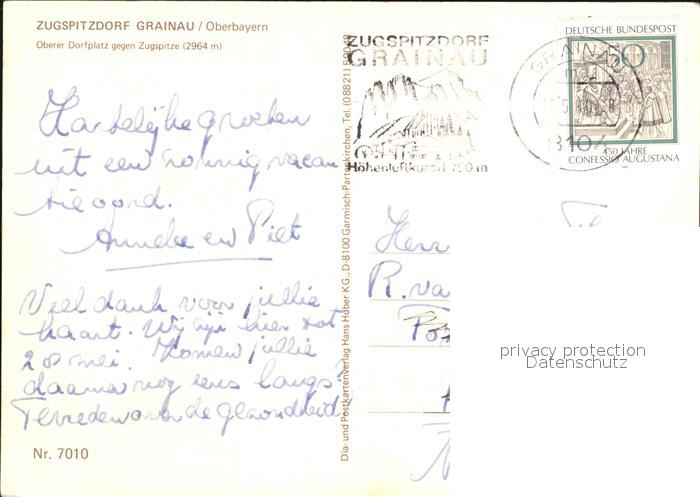 ZUGSPITZDORF GRAINAU / Oberbayern
Oberer Dorfplatz gegen Zugspitze (2964 m)
Hartelijke groeten
uit een zonnig vacan
tieoord.
Anneke en Piet
Veel dank voor jullie
kaart. Wij zijn hier tot
28 mei. Komen jullie
daarna nog eens langs?
Tevreden over de gezondheid
Nr. 7010
Dia- und Postkartenverlag Hans Huber KG., D-8100 Garmisch-Partenkirchen, Tel. (08821)
ZUGSPITZDORF
GRAINAU
Höhenluftkurort 750 m
GRAINAU
8104
DEUTSCHE BUNDESPOST
50
450 JAHRE
CONFESSIO AUGUSTANA
Herr
R. va
privacy protection
Datenschutz